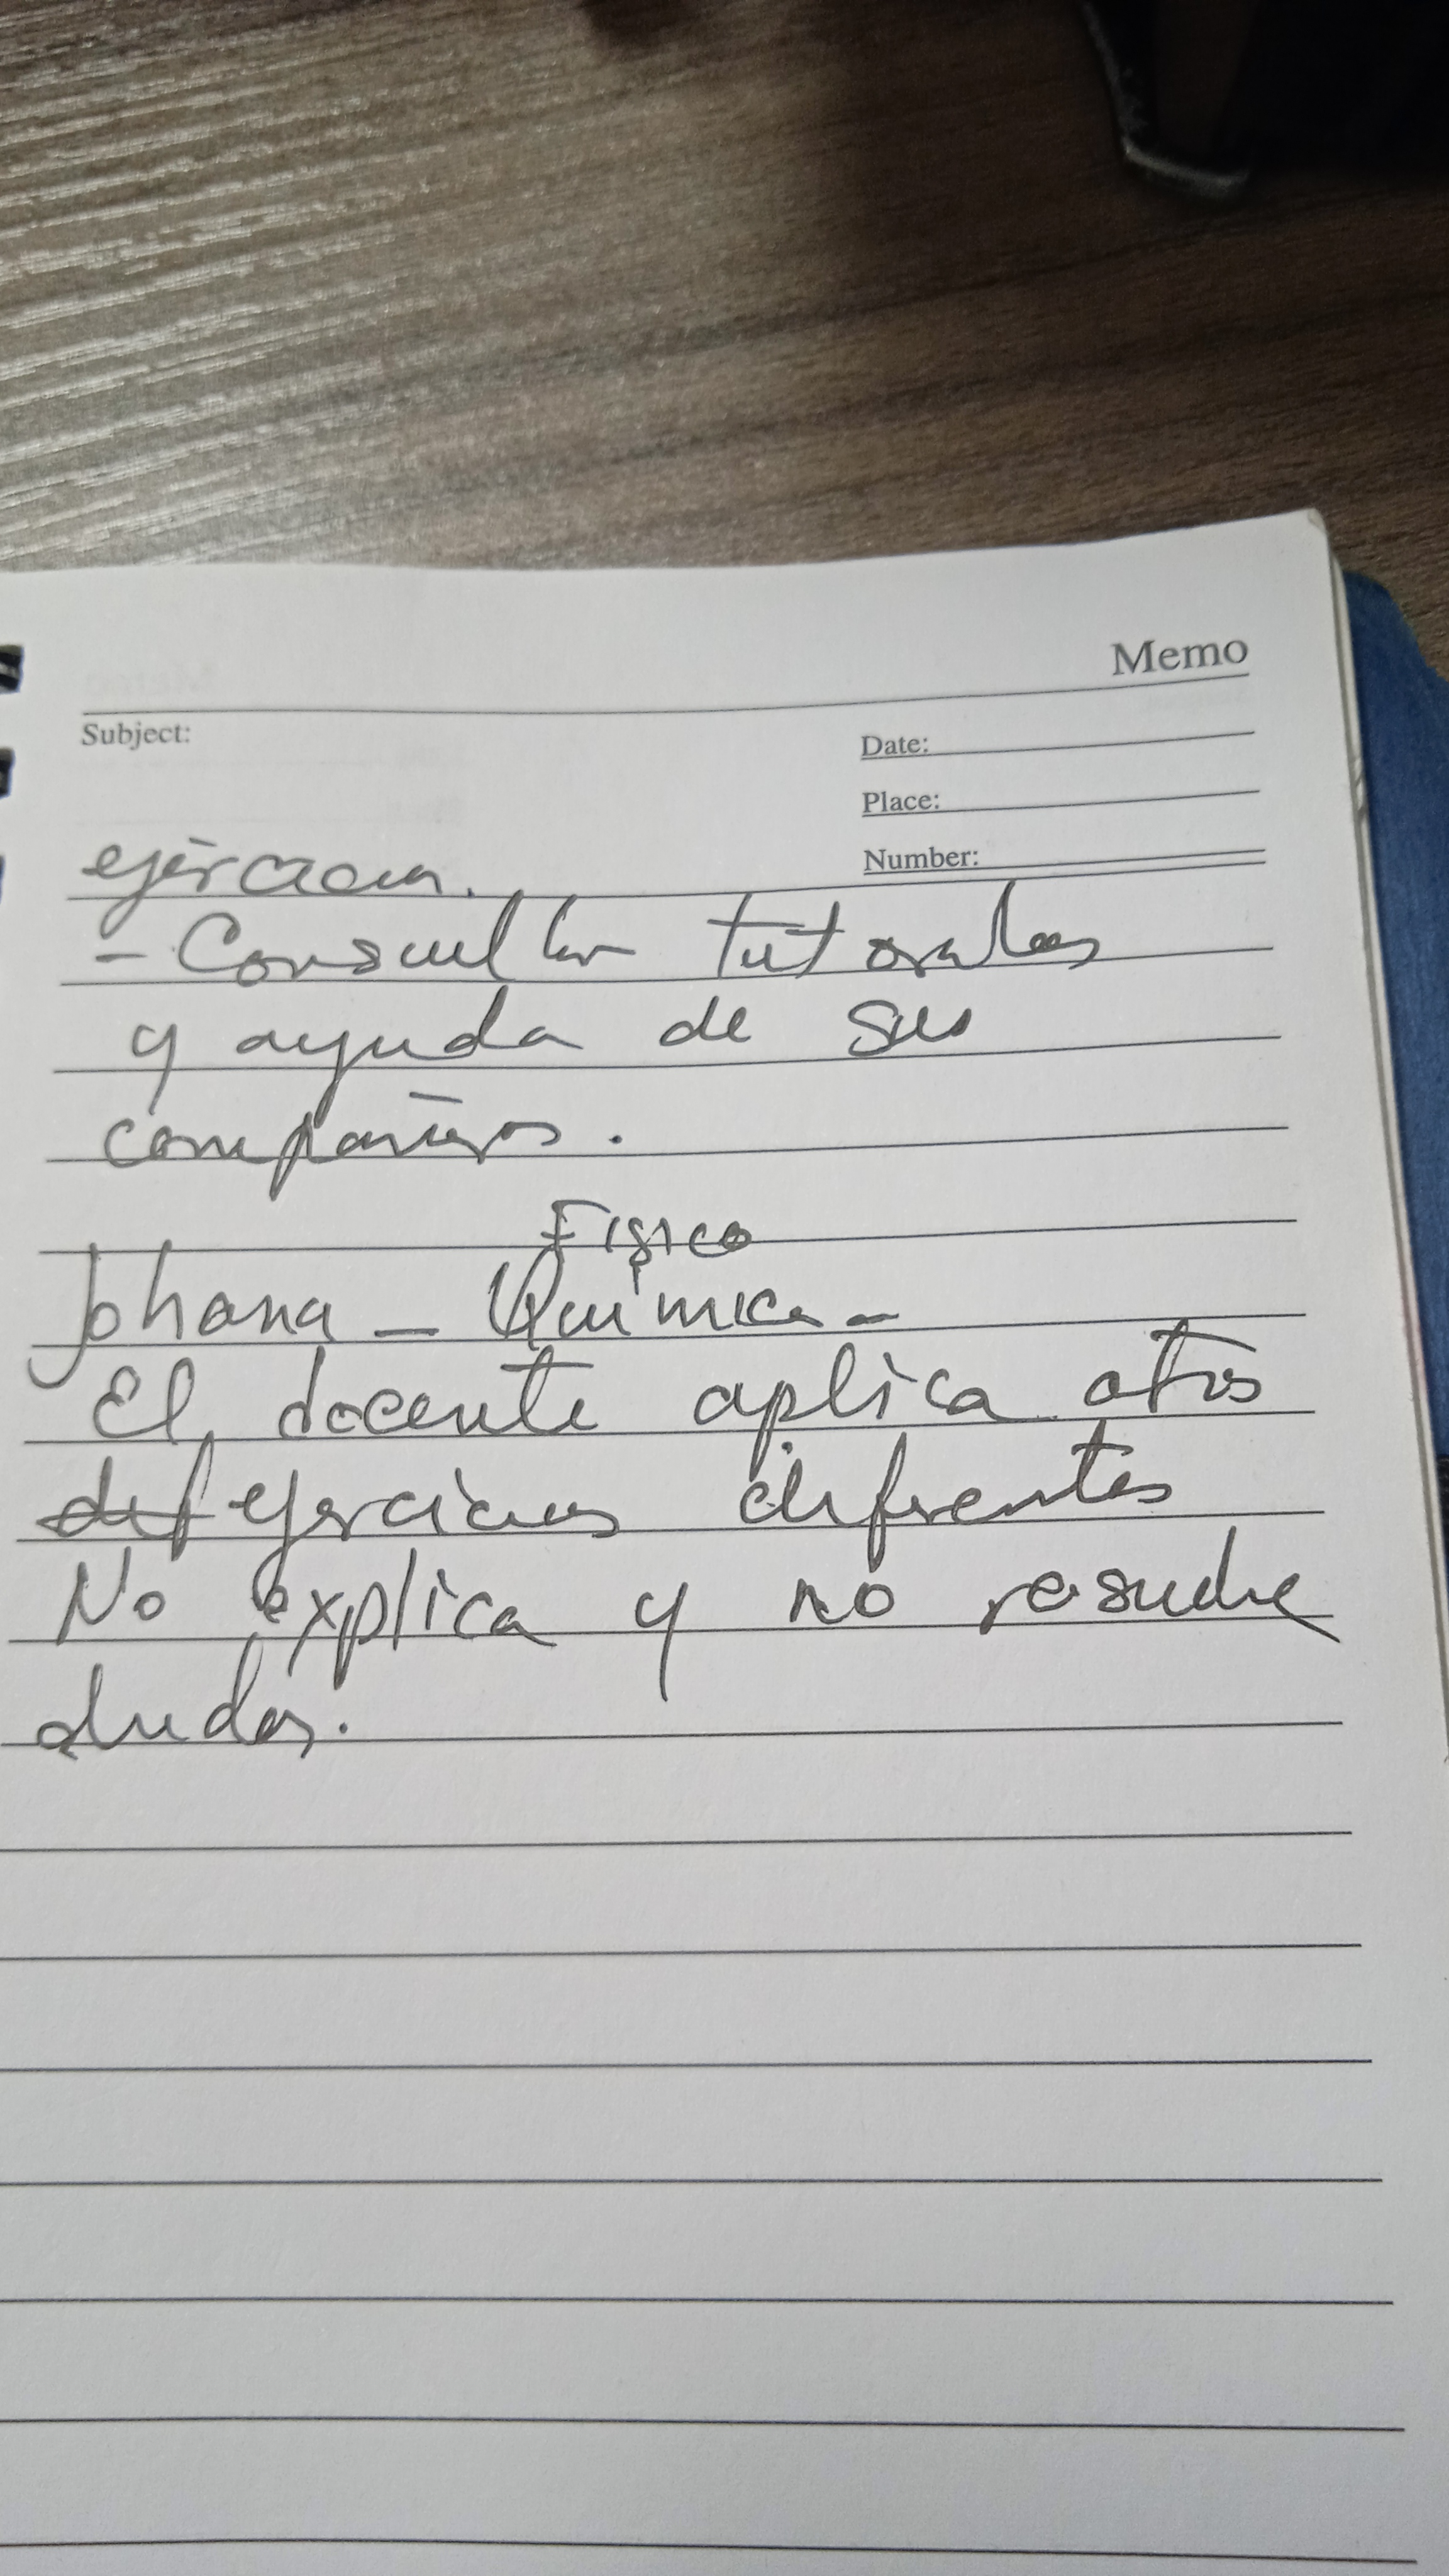 Memo
Subject:
Date:
Place:
Number:
- Consultar tutoriales
y ayuda de sus
compañeros.
Físico
Johana - Química -
El docente aplica otros
def ejercicios diferentes
No explica y no resuelve
dudas.